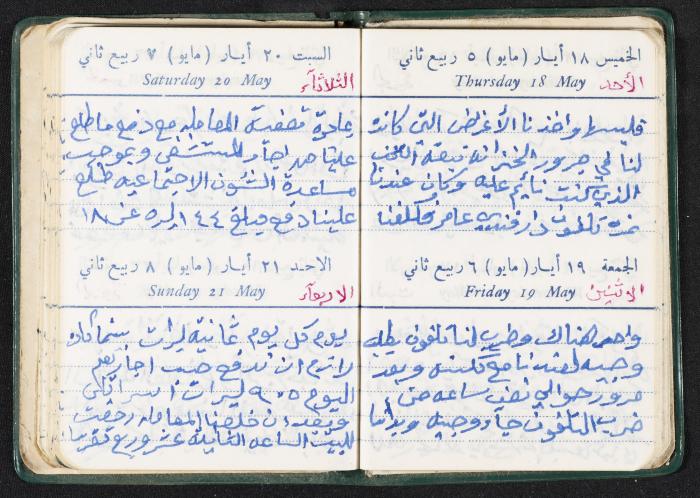 الخميس ١٨ أيار (مايو) ٥ ربيع ثاني
Thursday 18 May
الأحد
واخذنا الأغراض التي كانت
لنا في جرور الخزانة
الذي كنت نايم عليه وكان عندنا
عامر فكلفنا
الجمعة ١٩ أيار (مايو) ٦ ربيع ثاني
Friday 19 May
الاثنين
واحد هناك وضرب لنا تلفون يطلب
وجيه وبعد
مرور حوالي نصف ساعه من
ضرب التلفون جاء وجيه وبدأنا
السبت ٢٠ أيار (مايو) ٧ ربيع ثاني
Saturday 20 May
الثلاثاء
المعامله مع دفع ما طلع
علينا من اجار للمستشفى وبموجب
مساعدة الشئون الاجتماعيه طلع
علينا دفع مبلغ ١٤٤ ليره عن ١٨
الاحد ٢١ أيار (مايو) ٨ ربيع ثاني
Sunday 21 May
الاربعاء
يوم كل يوم ثمانية ليرات بينما كان
لازم ان ندفع حسب اجار
اليوم ٩٠٥ ليرات اسرائيلي
وبعد ان خلصنا المعامله رجعت
للبيت الساعه الثانية عشر وربع تقريبا